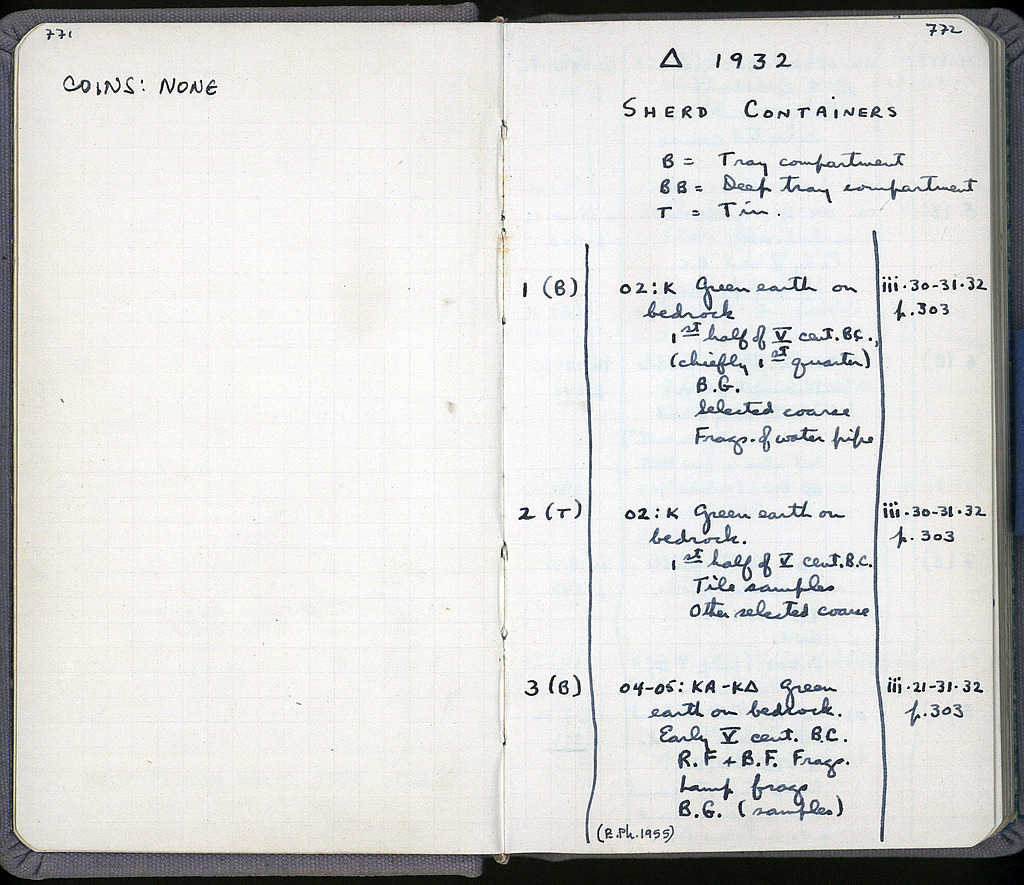 771
COINS: NONE
772
Δ 1932
SHERD CONTAINERS
B = Tray compartment
BB = Deep tray compartment
T = Tin.
1 (B) 02:K Green earth on iii·30-31·32
bedrock p.303
1st half of V cent. BC.,
(chiefly 1st quarter)
B.G.
Selected coarse
Frags. of water pipe
2 (T) 02:K Green earth on iii·30-31·32
bedrock. p.303
1st half of V cent. B.C.
Tile samples
Other selected coarse
3 (B) 04-05: KA-KΔ Green iii·21-31·32
earth on bedrock. p.303
Early V cent. B.C.
R.F + B.F. Frags.
Lamp frags
B.G. (samples)
(E.Ph.1955)